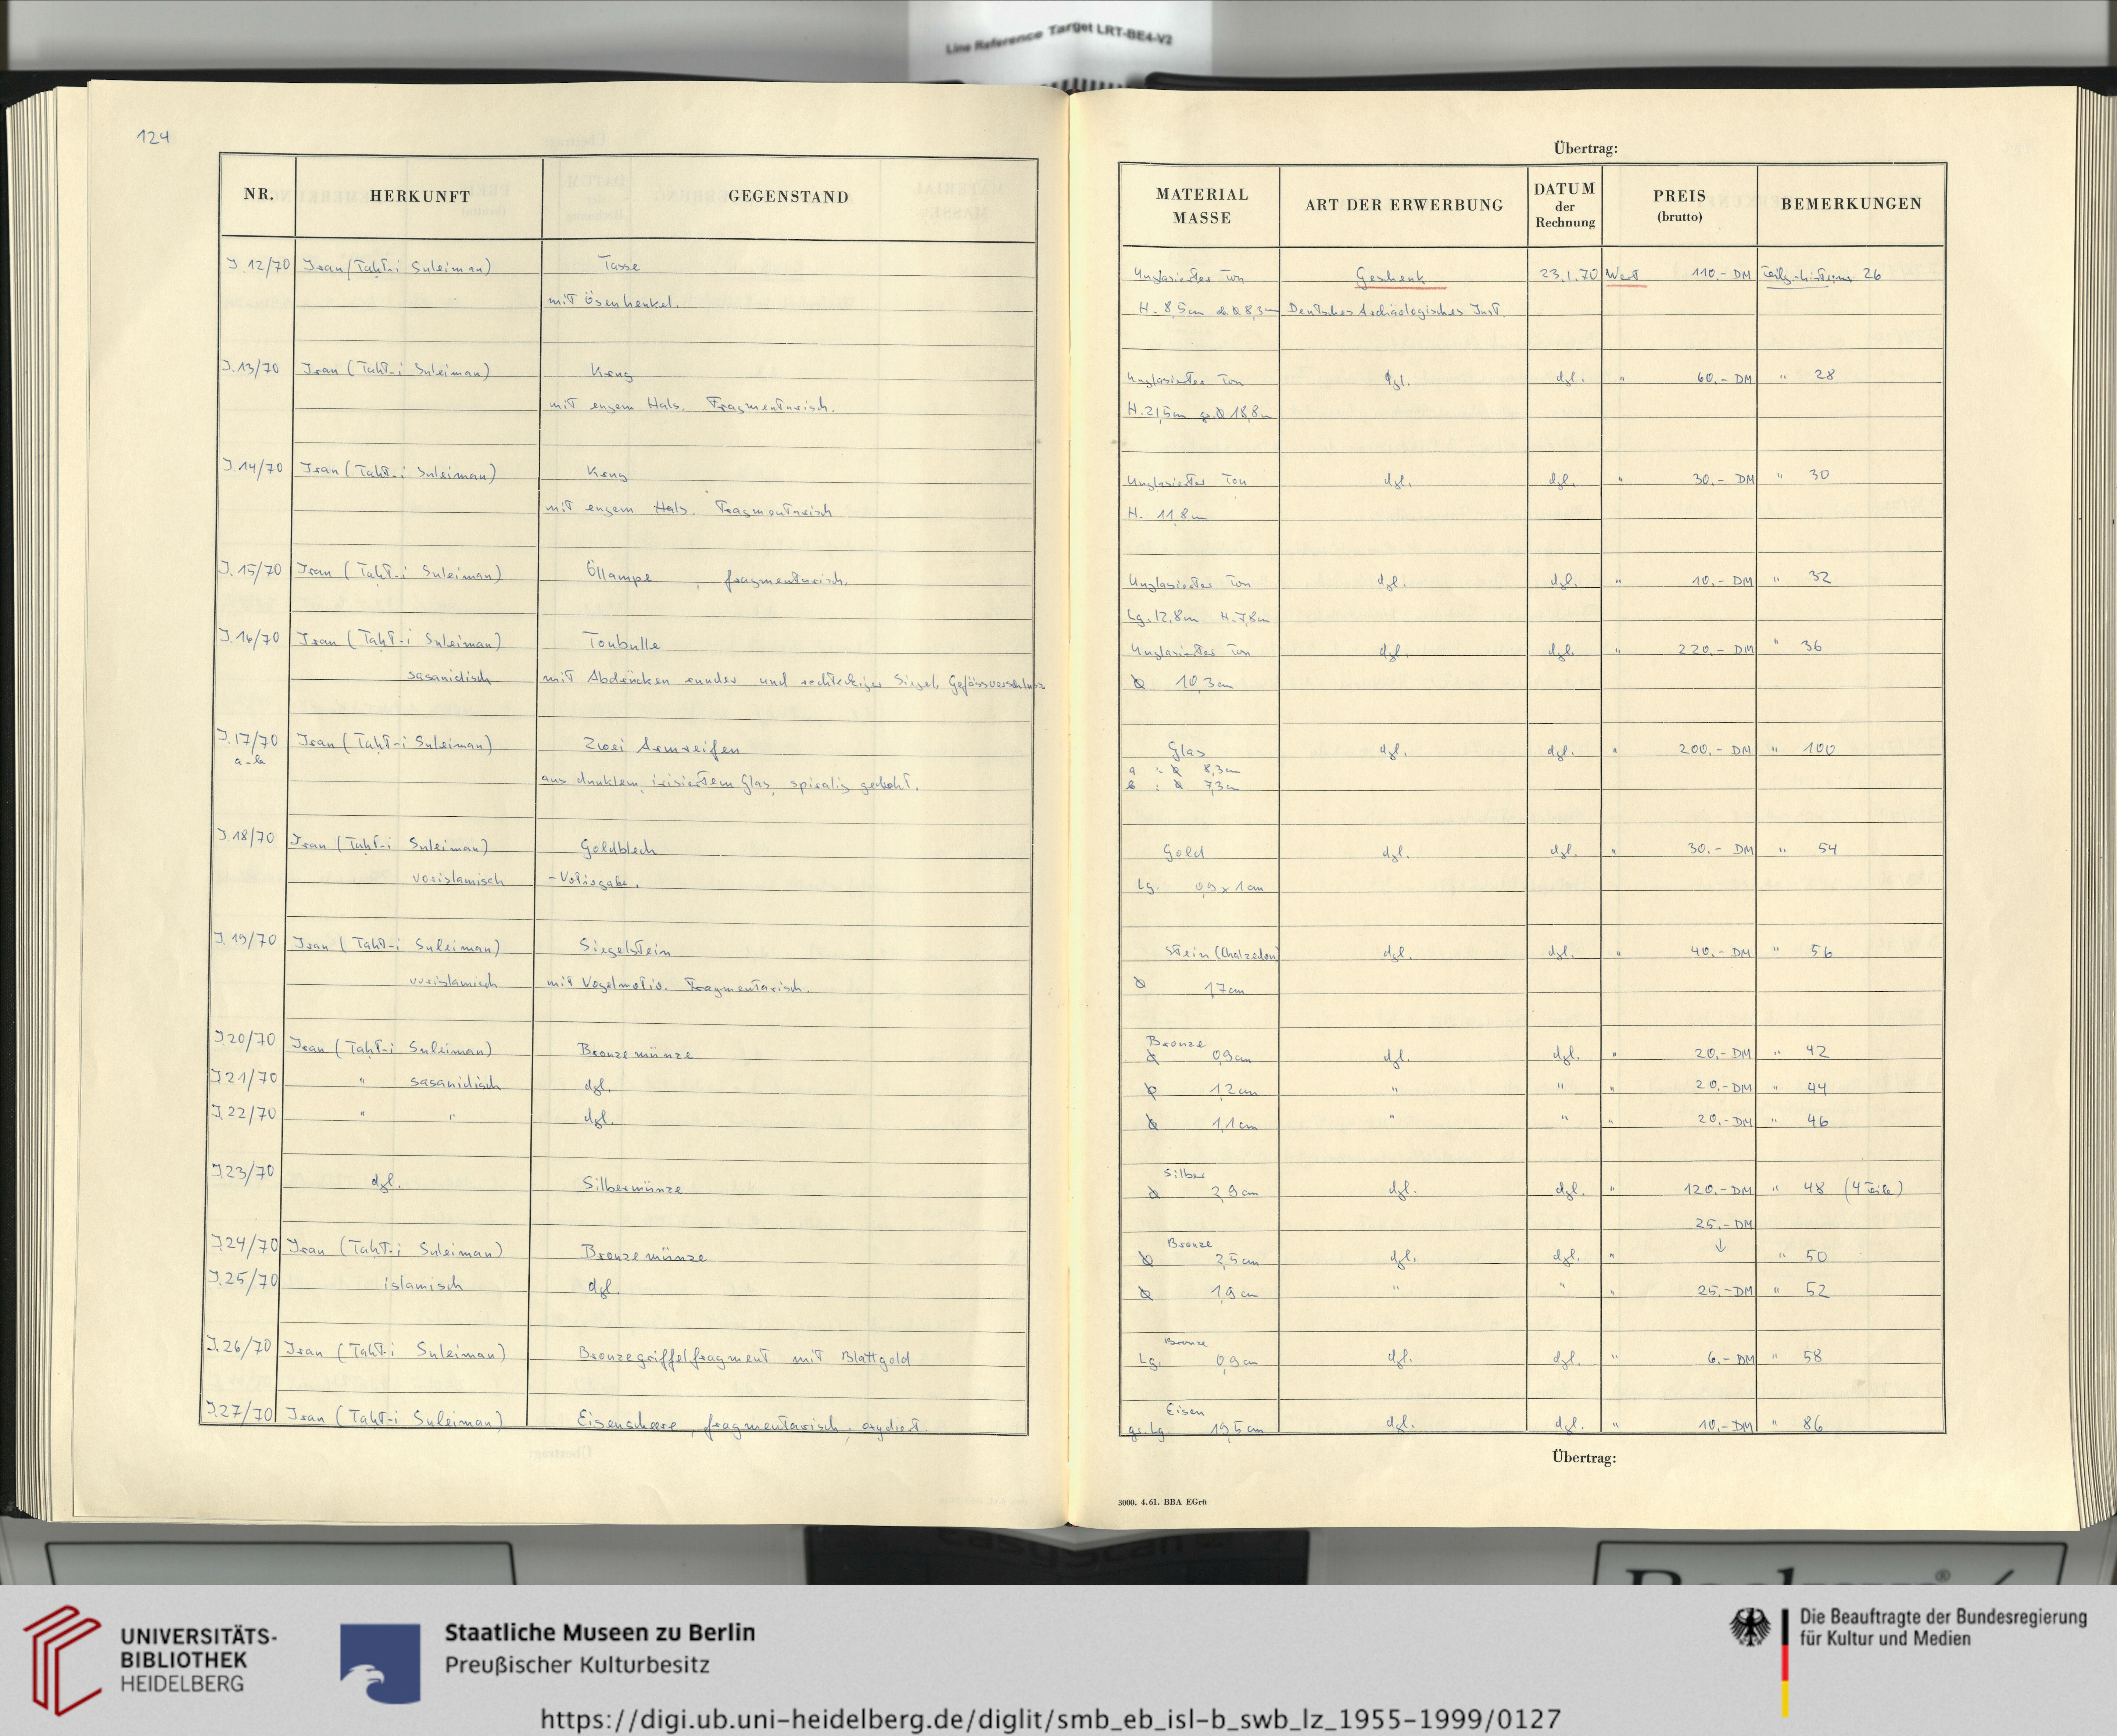 Line Reference Target LRT-BE4-V2
124
NR. HERKUNFT GEGENSTAND
J.12/70 Iran (Taḫt-i Suleiman) Tasse
mit Ösenhenkel.
J.13/70 Iran (Taḫt-i Suleiman) Krug
mit engem Hals. Fragmentarisch.
J.14/70 Iran (Taḫt-i Suleiman) Krug
mit engem Hals. Fragmentarisch
J.15/70 Iran (Taḫt-i Suleiman) Öllampe, fragmentarisch.
J.16/70 Iran (Taḫt-i Suleiman) Tonbulle
sasanidisch mit Abdrücken runder und rechteckiger Siegel, Gefässverschluss
J.17/70 Iran (Taḫt-i Suleiman) Zwei Armreifen
a-b
aus dunklem, irisiertem Glas, spiralig gedreht.
J.18/70 Iran (Taḫt-i Suleiman) Goldblech
vorislamisch -Votivgabe.
J.19/70 Iran (Taḫt-i Suleiman) Siegelstein
vorislamisch mit Vogelmotiv. Fragmentarisch.
J.20/70 Iran (Taḫt-i Suleiman) Bronzemünze
J.21/70 " sasanidisch dgl.
J.22/70 " " dgl.
J.23/70 dgl. Silbermünze
J.24/70 Iran (Taḫt-i Suleiman) Bronzemünze
J.25/70 islamisch dgl.
J.26/70 Iran (Taḫt-i Suleiman) Bronzegriffelfragment mit Blattgold
J.27/70 Iran (Taḫt-i Suleiman) Eisenschere, fragmentarisch, oxydiert.
Übertrag:
MATERIAL MASSE ART DER ERWERBUNG DATUM der Rechnung PREIS (brutto) BEMERKUNGEN
Unglasierter Ton Geschenk 23.1.70 Wert 110.- DM 26
H. 8,5cm Ø 8,3cm Deutsches Archäologisches Inst.
Unglasierter Ton dgl. dgl. " 60.- DM " 28
H. 21,5cm gr. Ø 18,8cm
Unglasierter Ton dgl. dgl. " 30.- DM " 30
H. 11,8cm
Unglasierter Ton dgl. dgl. " 10.- DM " 32
Lg. 12,8cm H. 7,8cm
Unglasierter Ton dgl. dgl. " 220.- DM " 36
Ø 10,3cm
Glas dgl. dgl. " 200.- DM " 100
a : Ø 8,3cm
b : Ø 7,3cm
Gold dgl. dgl. " 30.- DM " 54
Lg. 0,9 x 1cm
Stein (Chalzedon) dgl. dgl. " 40.- DM " 56
Ø 1,7cm
Bronze
Ø 0,9cm dgl. dgl. " 20.- DM " 42
Ø 1,2cm " " " 20.- DM " 44
Ø 1,1cm " " " 20.- DM " 46
Silber
Ø 2,9cm dgl. dgl. " 120.- DM " 48 (4 Teile)
25.- DM
Bronze ↓
Ø 2,5cm dgl. dgl. " " 50
Ø 1,9cm " " " 25.- DM " 52
Bronze
Lg. 0,9cm dgl. dgl. " 6.- DM " 58
Eisen
gr. Lg. 19,5cm dgl. dgl. " 10.- DM " 86
Übertrag:
3000. 4.61. BBA EGrü
UNIVERSITÄTS-
BIBLIOTHEK
HEIDELBERG
Staatliche Museen zu Berlin
Preußischer Kulturbesitz
Die Beauftragte der Bundesregierung
für Kultur und Medien
https://digi.ub.uni-heidelberg.de/diglit/smb_eb_isl-b_swb_lz_1955-1999/0127